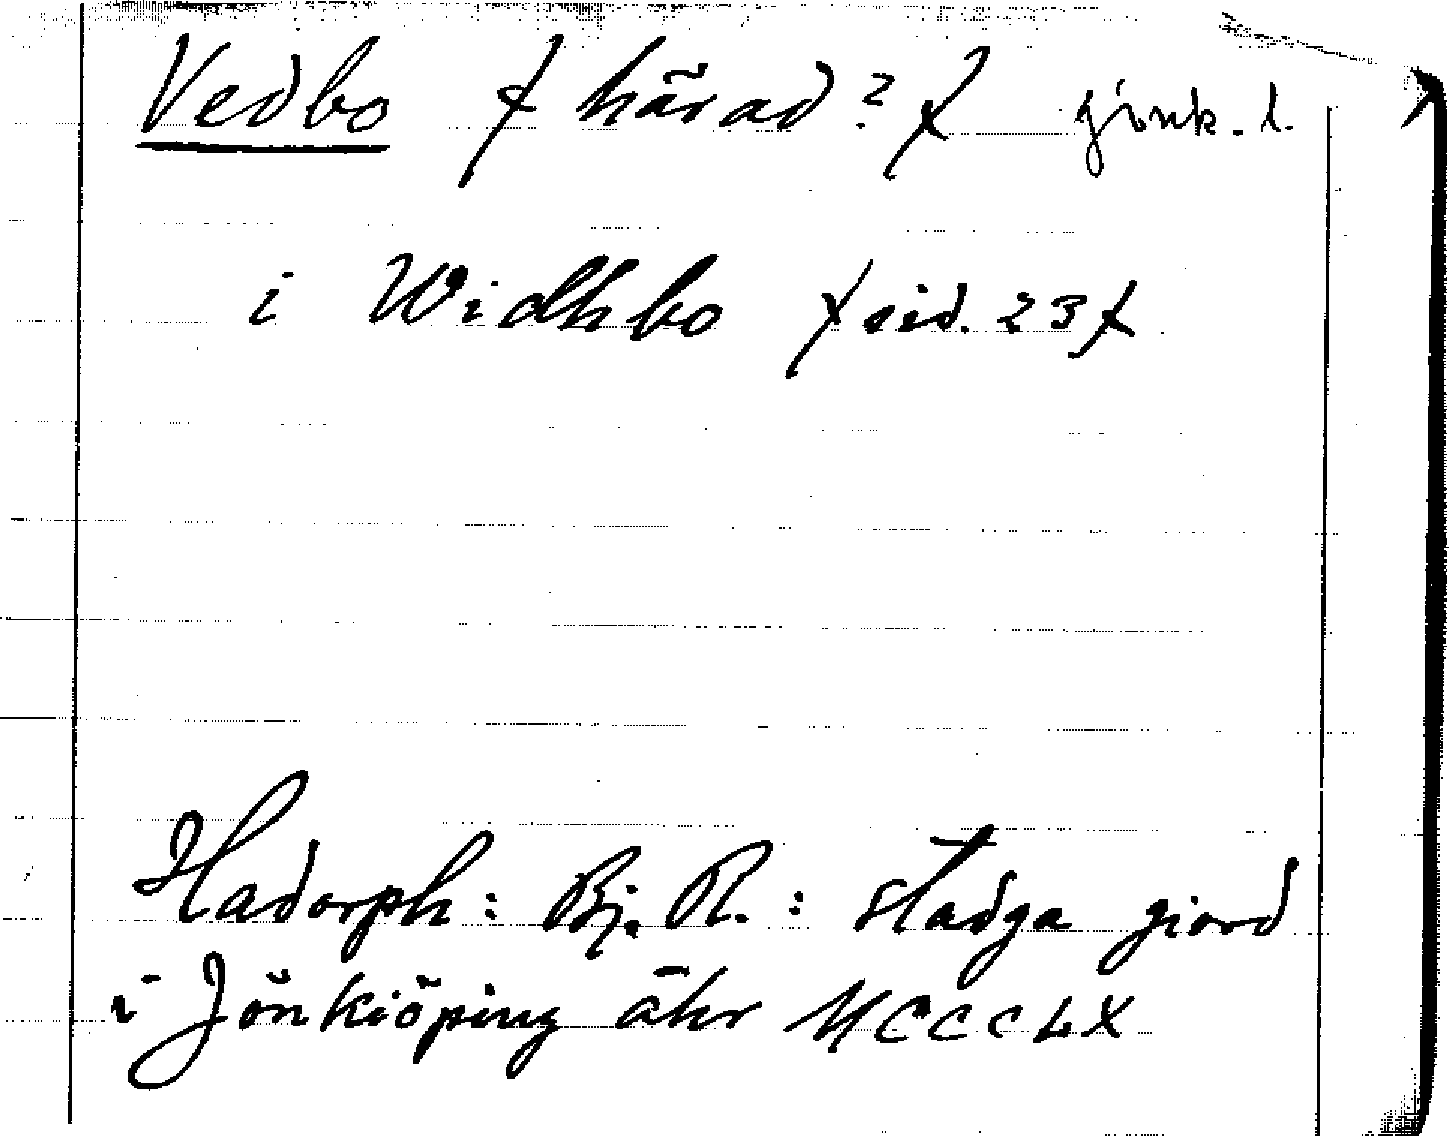 Vedbo ( härad? ) jönk. l.
i Widhbo ( sid. 23 )
Hadorph: Bj. R.: stadga giord
i Jönkiöping åhr MCCCLX